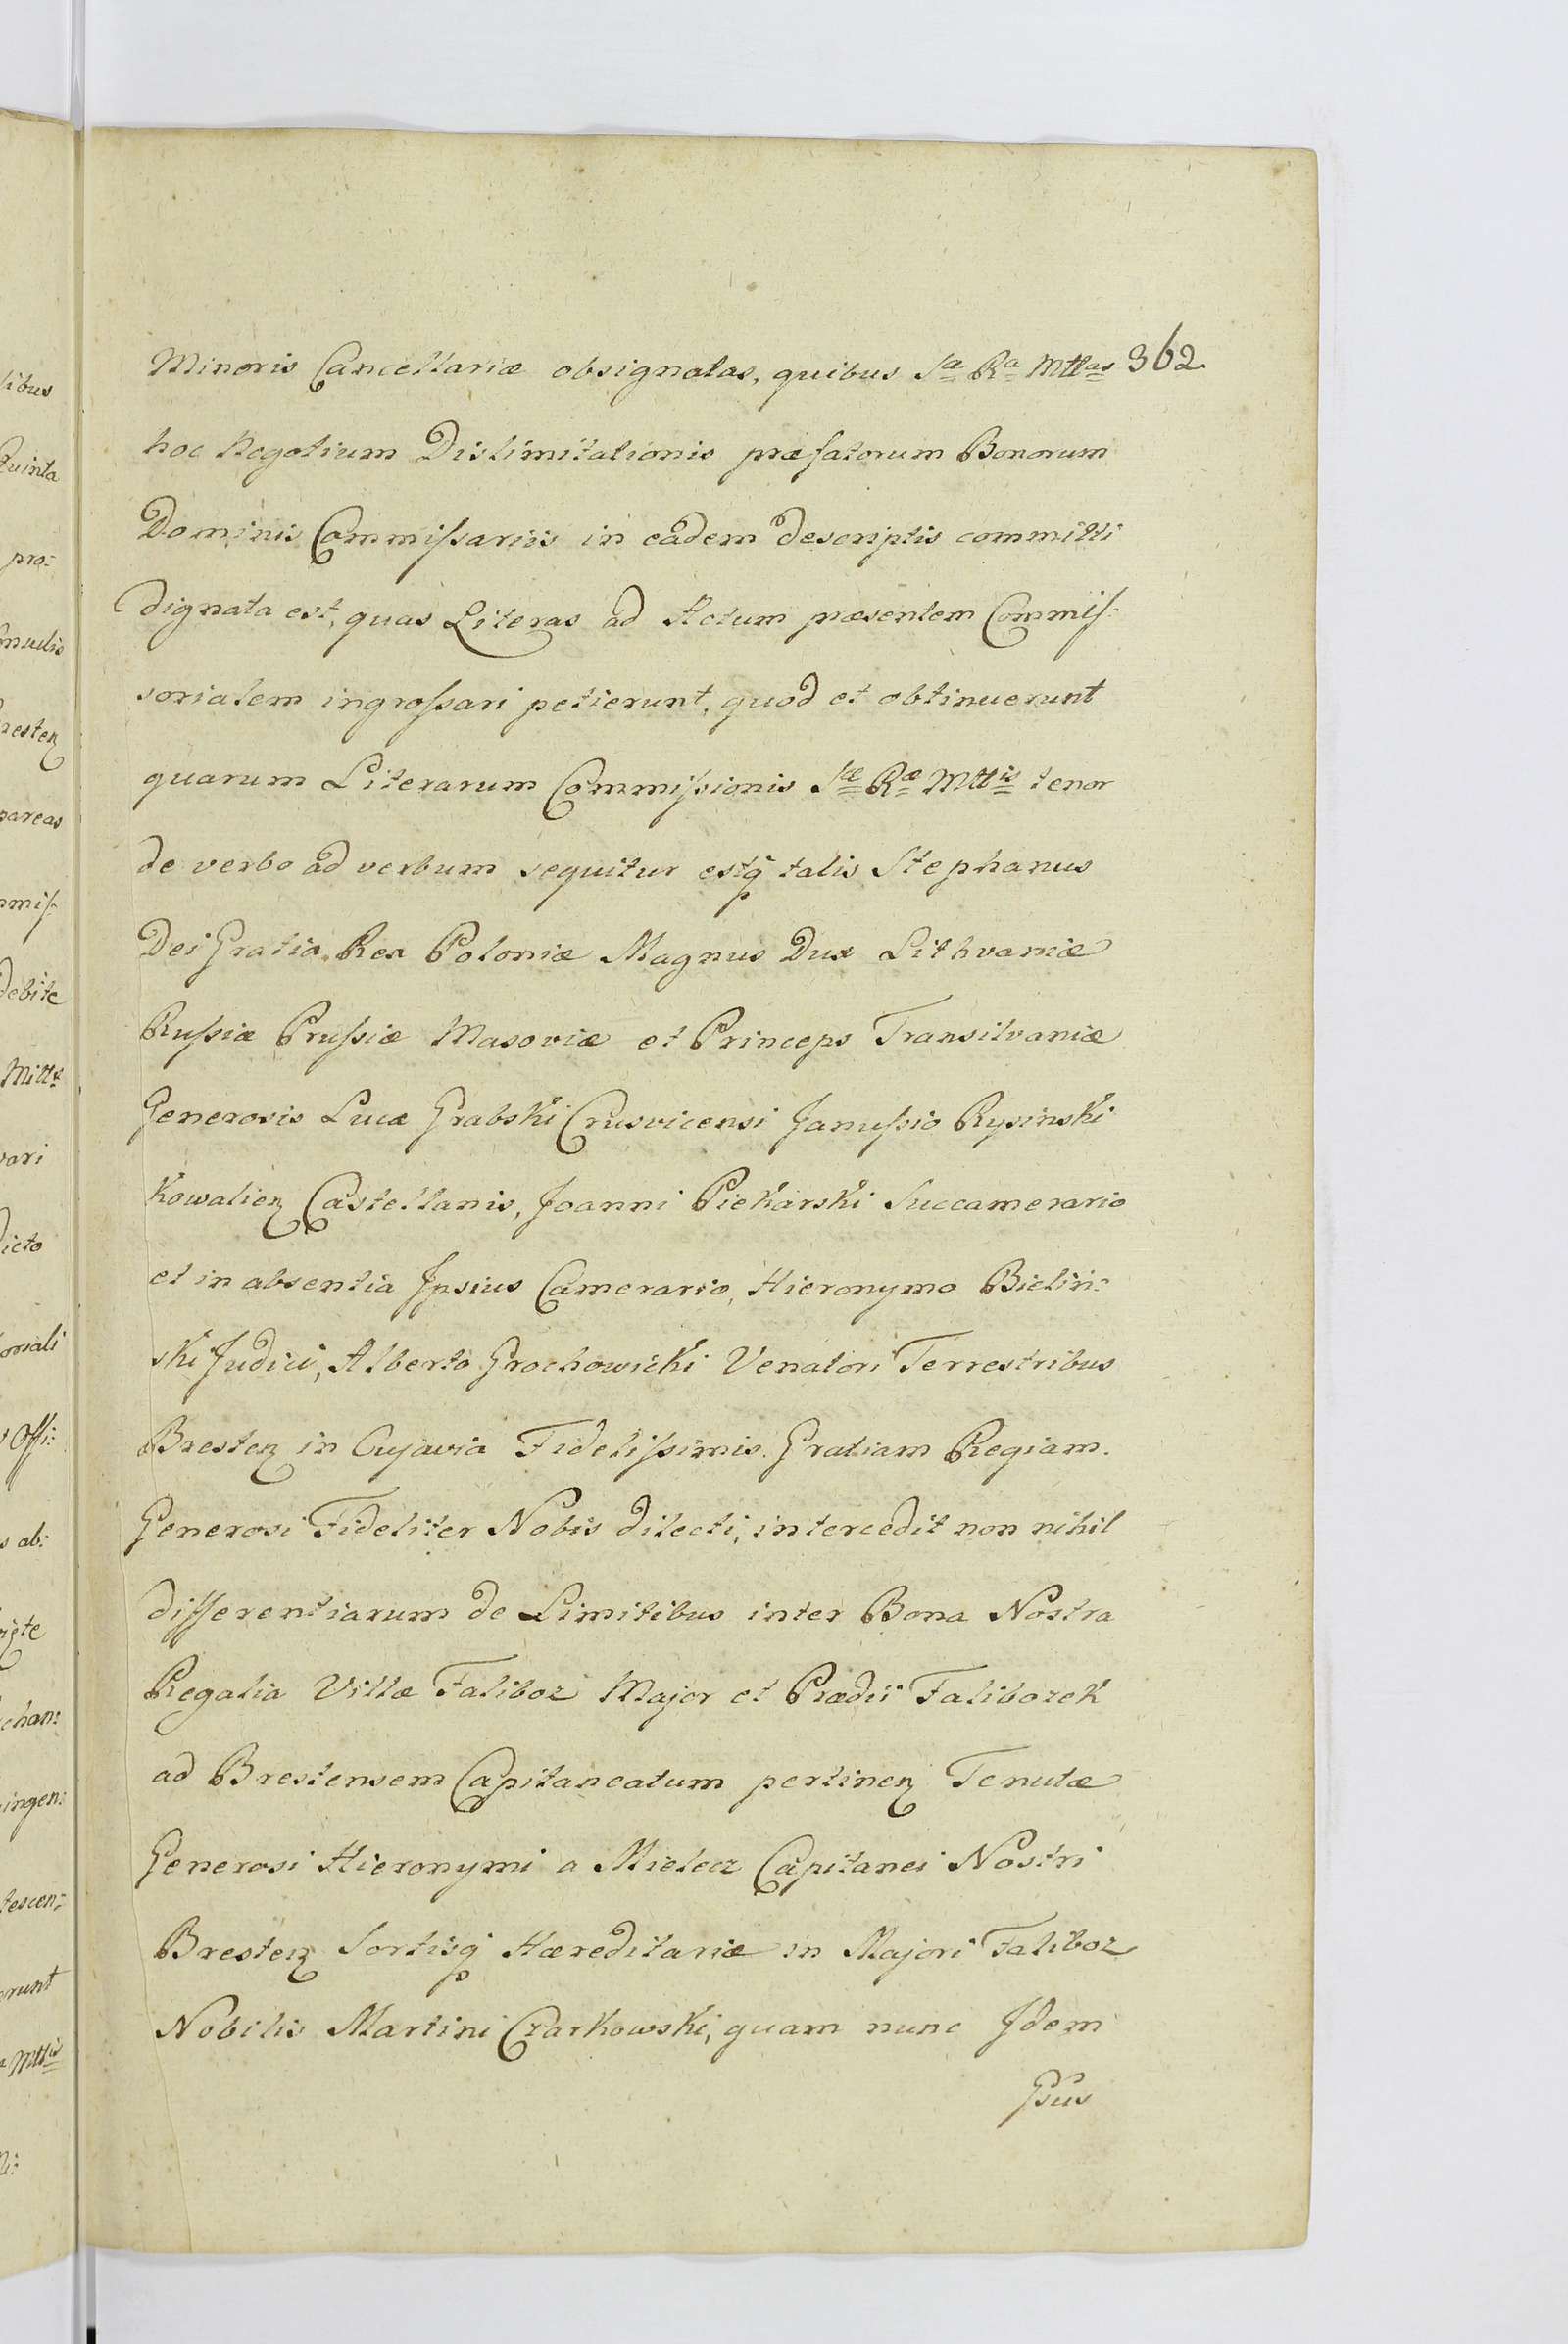 libus
Quinta
pro:
resten
pareas
mis:
debite
Mttis
vari
Dicto
oriali
Offi:
s ab:
chan:
ingen:
tescen:
erunt
Mttis
362
Minoris Cancellariæ obsignatas, quibus Sa Ra Mttas
hoc Negotium Dislimitationis præfatorum Bonorum
Dominis Commissariis in eâdem descriptis committi
dignata est, quas Literas ad Actum præsentem Commis:
sorialem ingrossari petierunt, quod et obtinuerunt
quarum Literarum Commissionis Sæ Ræ Mttis tenor
de verbo ad verbum sequitur estq talis Stephanus
Dei Gratia Rex Poloniæ Magnus Dux Lithvaniæ
Russiæ Prussiæ Masoviæ et Princeps Transilvaniæ
Generosis Lucæ Grabski Crusvicensi Janussio Rysinski
Kowalien Castellanis, Joanni Piekarski Succamerario
et in absentia Ipsius Camerario, Hieronymo Bielin:
ski Judici, Alberto Grochowicki Venatori Terrestribus
Bresten in Cujavia Fidelissimis. Gratiam Regiam.
Generosi Fideliter Nobis dilecti, intercedit non nihil
differentiarum de Limitibus inter Bona Nostra
Regalia Villæ Faliboz Major et Prædii Falibozek
ad Brestensem Capitaneatum pertinen Tenutæ
Generosi Hieronymi a Mielecz Capitanei Nostri
Bresten Sortisq Hæreditariæ in Majori Faliboz
Nobilis Martini Czarkowski, quam nunc Idem
Gsus